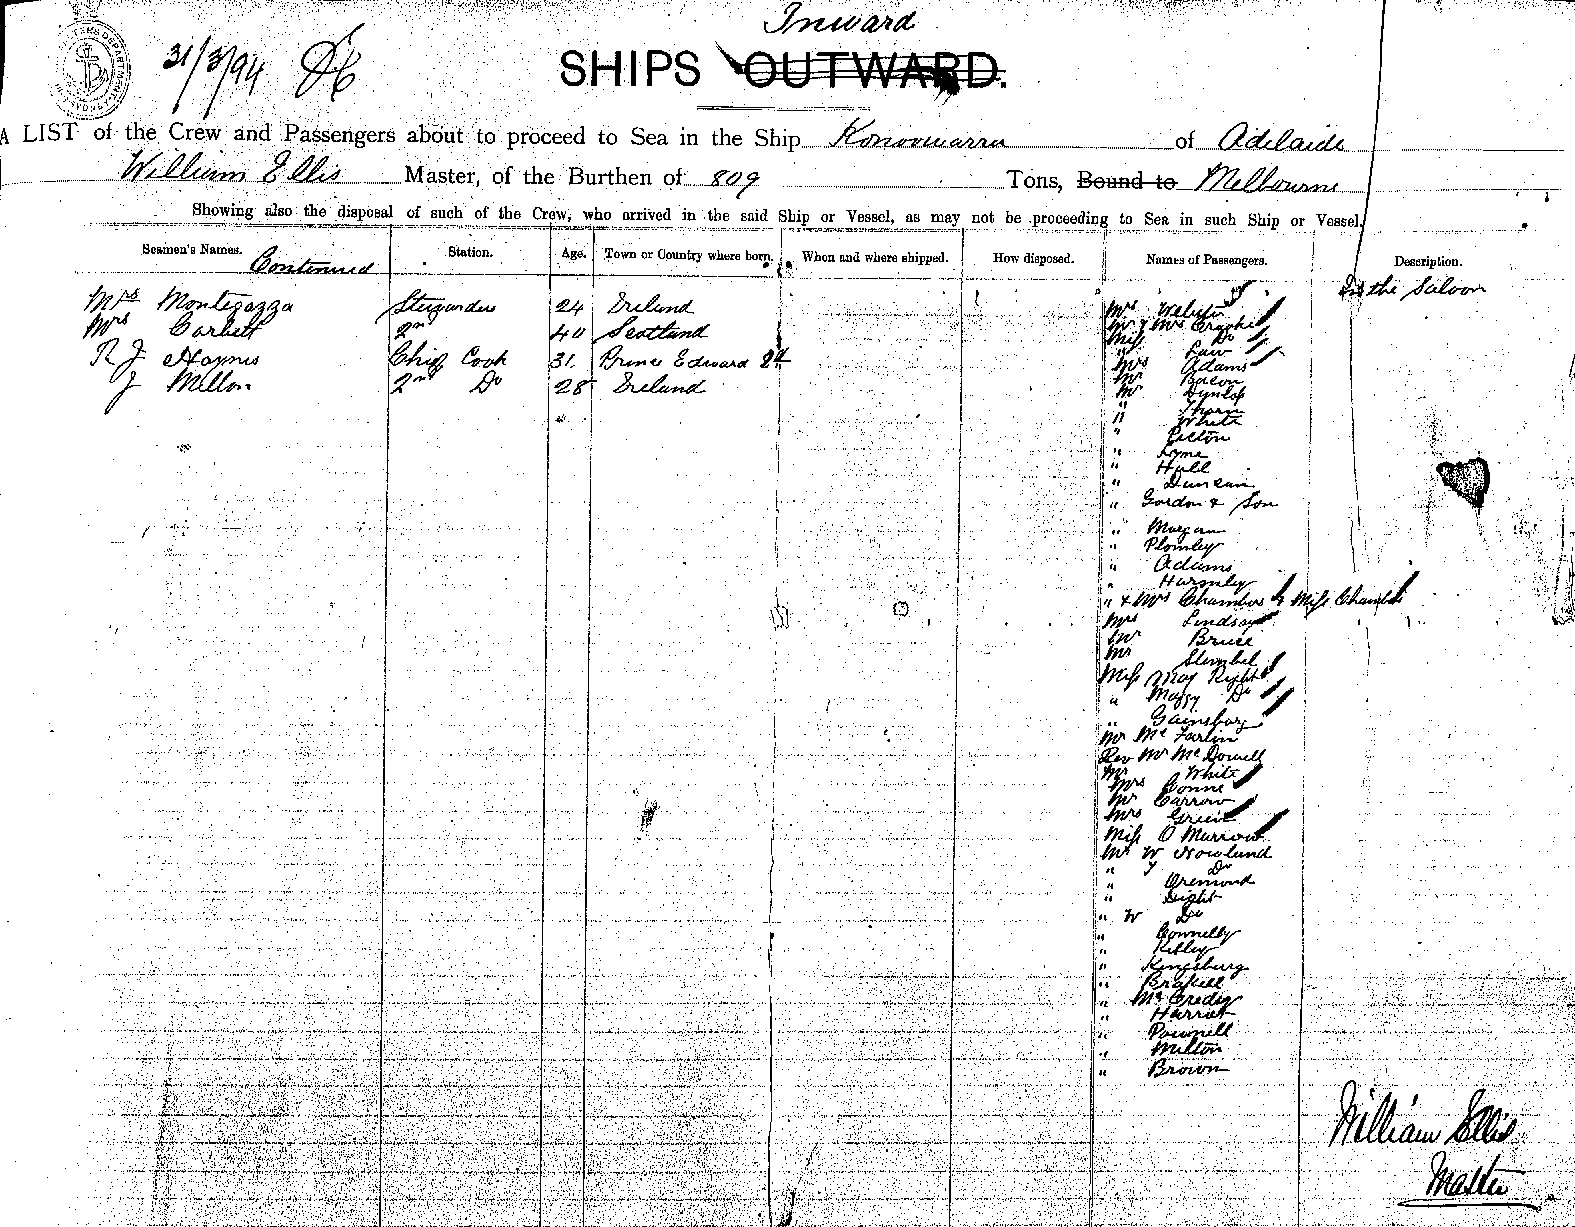 Inward
31/3/94
SHIPS OUTWARD.
A LIST of the Crew and Passengers about to proceed to Sea in the Ship Konoowarra of Adelaide
William Ellis Master, of the Burthen of 809 Tons, Bound to Melbourne
Showing also the disposal of such of the Crew, who arrived in the said Ship or Vessel, as may not be proceeding to Sea in such Ship or Vessel.
Seamen's Names. Station. Age. Town or Country where born. When and where shipped. How disposed. Names of Passengers. Description.
Continued
In the Saloon
Mrs Montegazza Stewardess 24 Ireland
Mrs Corbett 2nd 40 Scotland
R J Haynes Chief Cook 31 Prince Edward
J Mellon 2nd Do 28 Ireland
Mrs
Mr & Mrs
Miss Do
" Law
Mrs Adams
Mr Bacon
Mr Dunlop
" Thorn
" White
" Picton
" Lyne
" Hall
" Duncan
" Gordon & Son
" Morgan
" Plomley
" Adams
"
" & Mrs Chambers & Miss Chambers
Mrs Lindsay
Mr Bruce
Mr
Miss May
" Maggy Do
" Gainsborg
Mr Mc Farlin
Rev Mr McDowell
Mr White
Mrs Conne
Mr Carrow
Mrs Green
Miss O Marrow
Mr W Howland
" J Do
" Ormond
" Dight
" W Do
" Connelly
" Kelley
" Kingsburg
"
" McCredig
" Harriot
" Pownell
" Milton
" Brown
William Ellis
Master